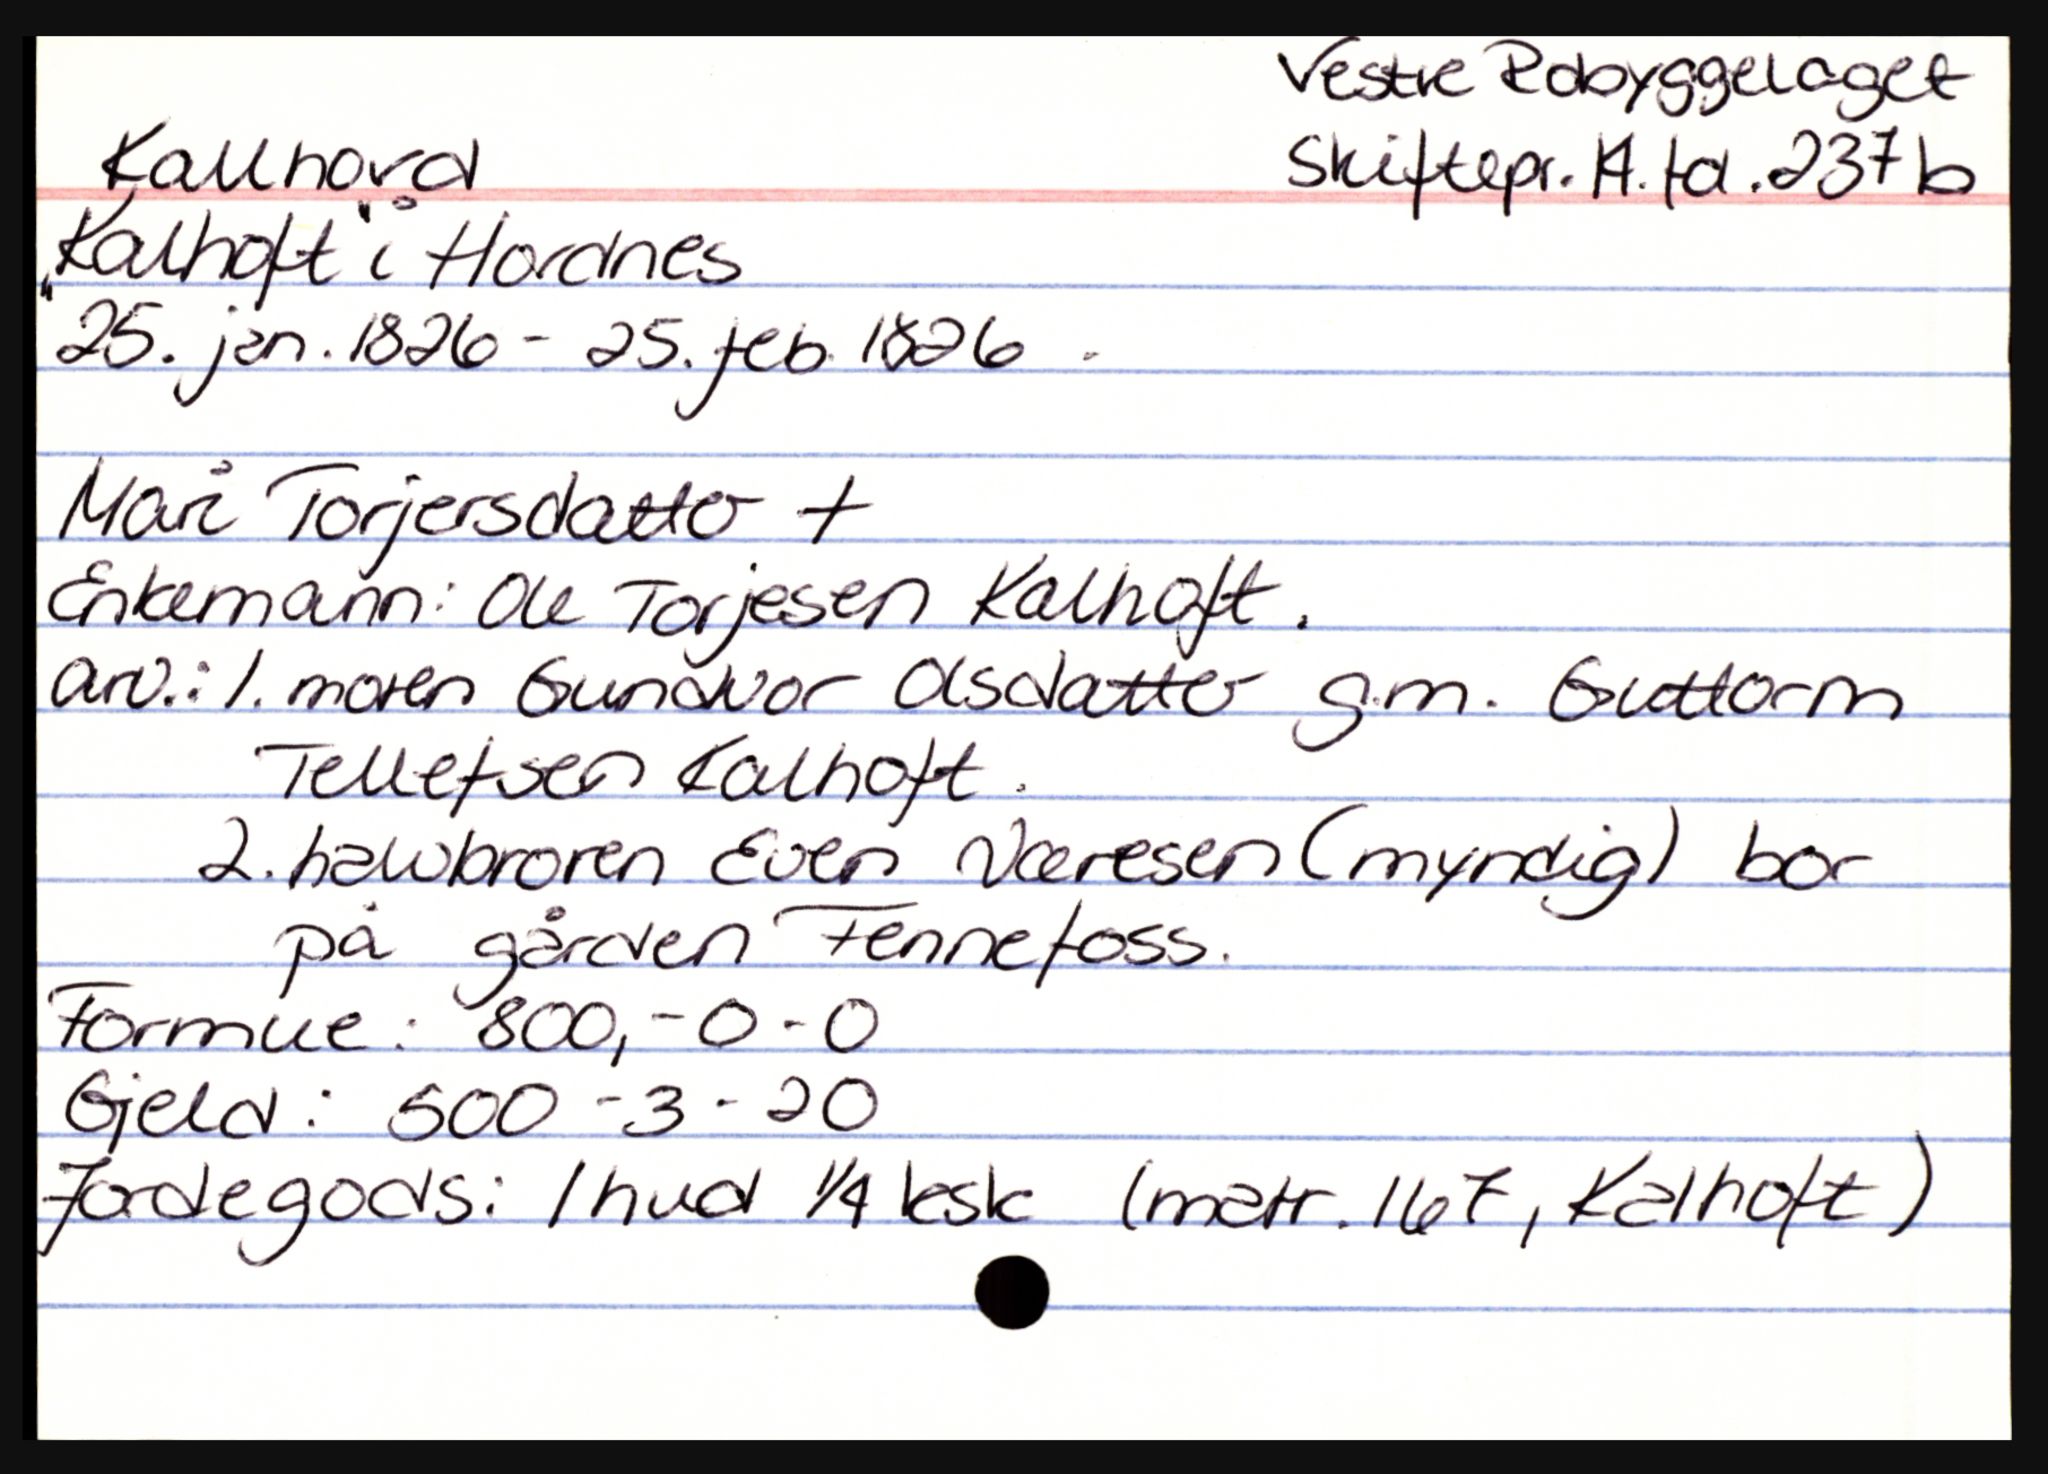 Vestre Robyggelaget
Kallhovd
Skiftepr. 14. fol. 237 b
"Kalhoft" i Hordnes
25. jan. 1826 - 25. feb. 1826.
Mari Torjersdatter +
Enkemann: Ole Torjesen Kalhoft.
arv.: 1. moren Gundvor Olsdatter g.m. Guttorm
Tellefsen Kalhoft.
2. halvbroren Even Næresen (myndig) bor
på gården Fennefoss.
Formue: 800,-0-0
Gjeld: 500-3-20
Jordegods: 1 hud 1/4 ksk (matr. 167, Kalhoft)